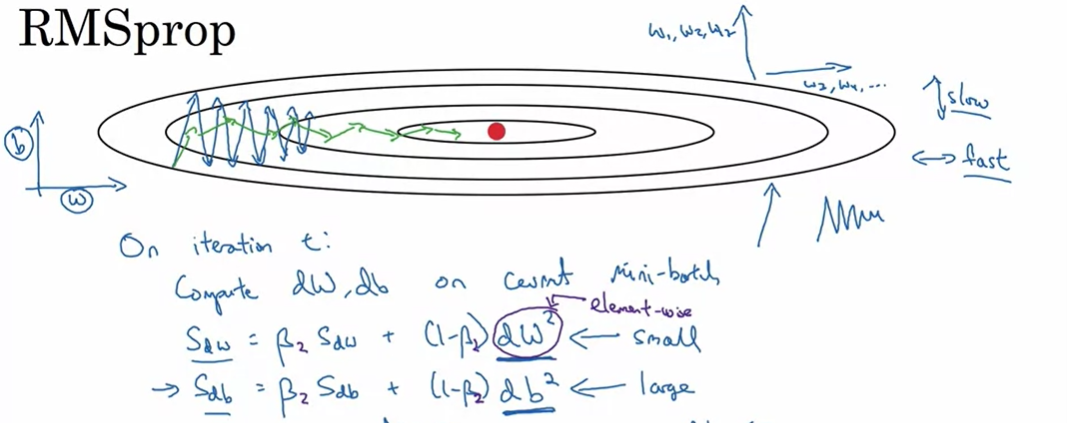 RMSprop
w₁, w₂, w₂
w₃, w₄, ...
slow
fast
b
w
On iteration t:
Compute dW, db on current mini-batch
element-wise
S_dw = β₂ S_dw + (1-β₂) dW² ← small
→ S_db = β₂ S_db + (1-β₂) db² ← large